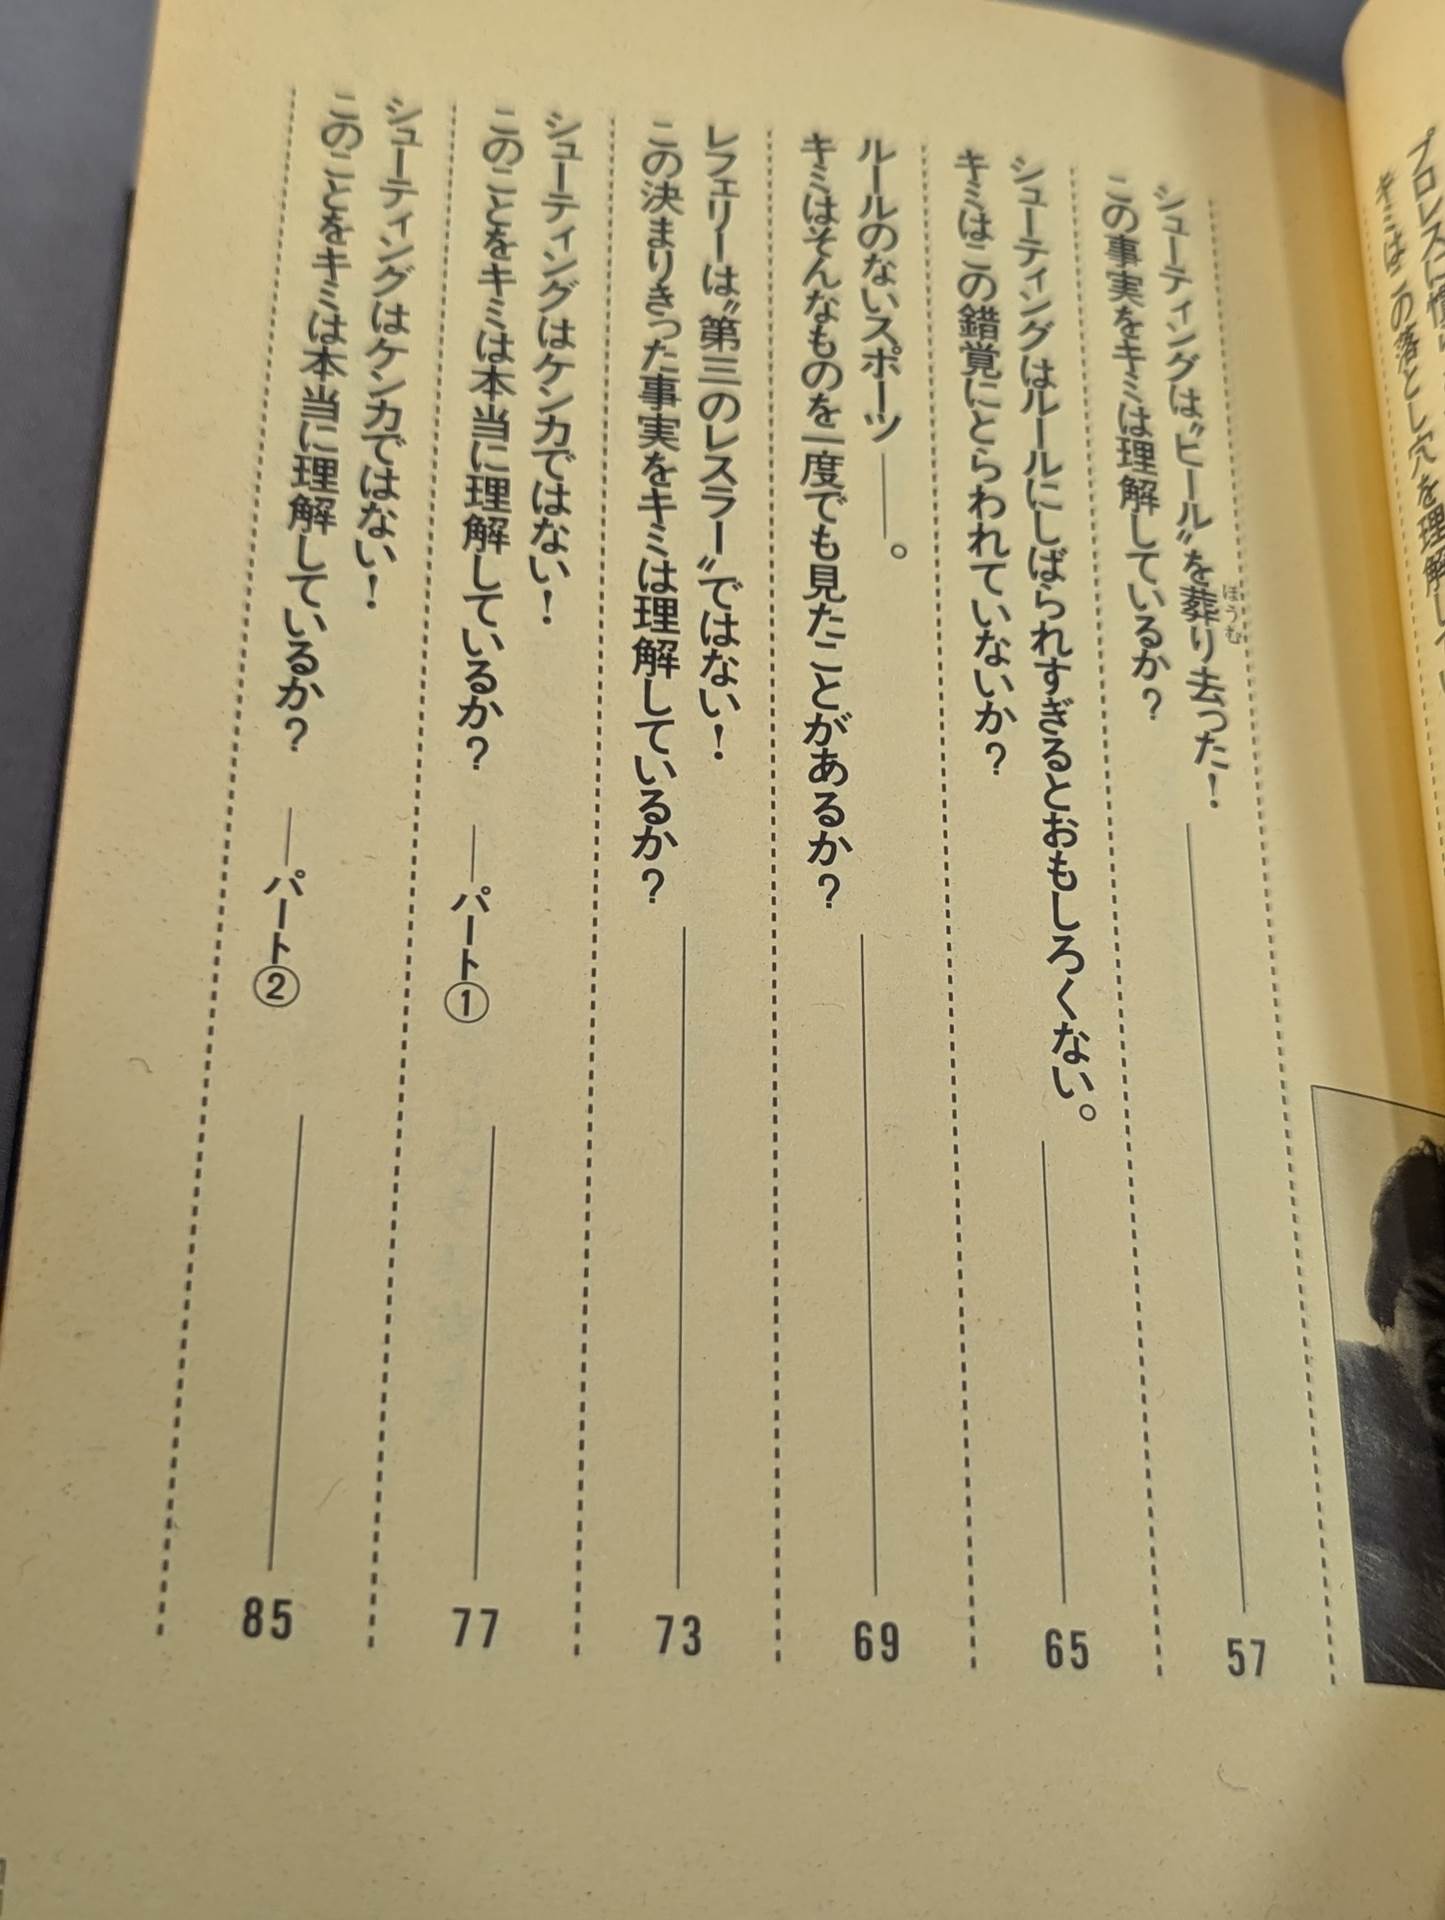 シューティングは〝ヒール〟を葬り去った！
ほうむ
この事実をキミは理解しているか？
57
シューティングはルールにしばられすぎるとおもしろくない。
キミはこの錯覚にとらわれていないか？
65
ルールのないスポーツ——。
キミはそんなものを一度でも見たことがあるか？
69
レフェリーは〝第三のレスラー〟ではない！
この決まりきった事実をキミは理解しているか？
73
シューティングはケンカではない！
このことをキミは本当に理解しているか？ ——パート①
77
シューティングはケンカではない！
このことをキミは本当に理解しているか？ ——パート②
85